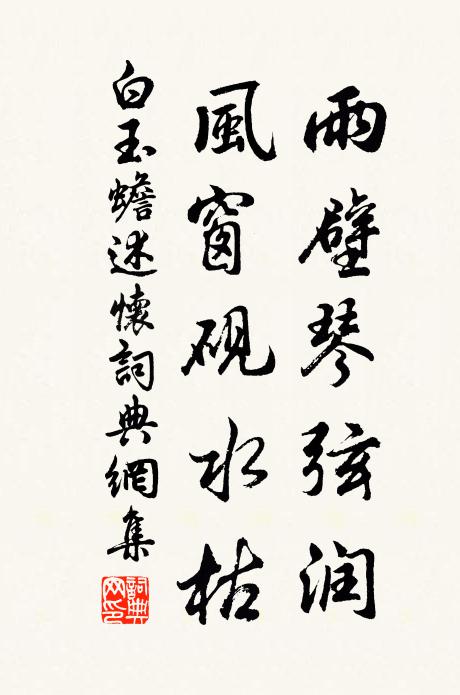 雨壁琴弦润
風窗砚水枯
白玉蟾述懷詞典網集
詞典
网印